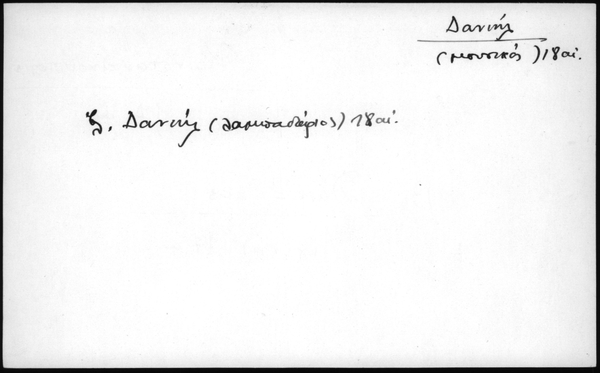 Δανιήλ
(μουσικός) 18 αἰ.
ζ. Δανιήλ (λαμπαδάριος) 18 αἰ.